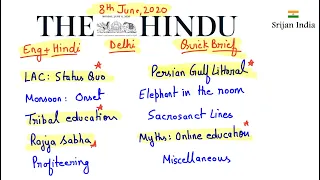 8th June, 2020
Srijan India
THE HINDU
Eng + Hindi Delhi Quick Brief
LAC: Status Quo
Persian Gulf Littoral
Monsoon: Onset
Elephant in the room
Tribal education
Sacrosanct Lines
Rajya sabha
Myths: Online education
Profiteering
Miscellaneous